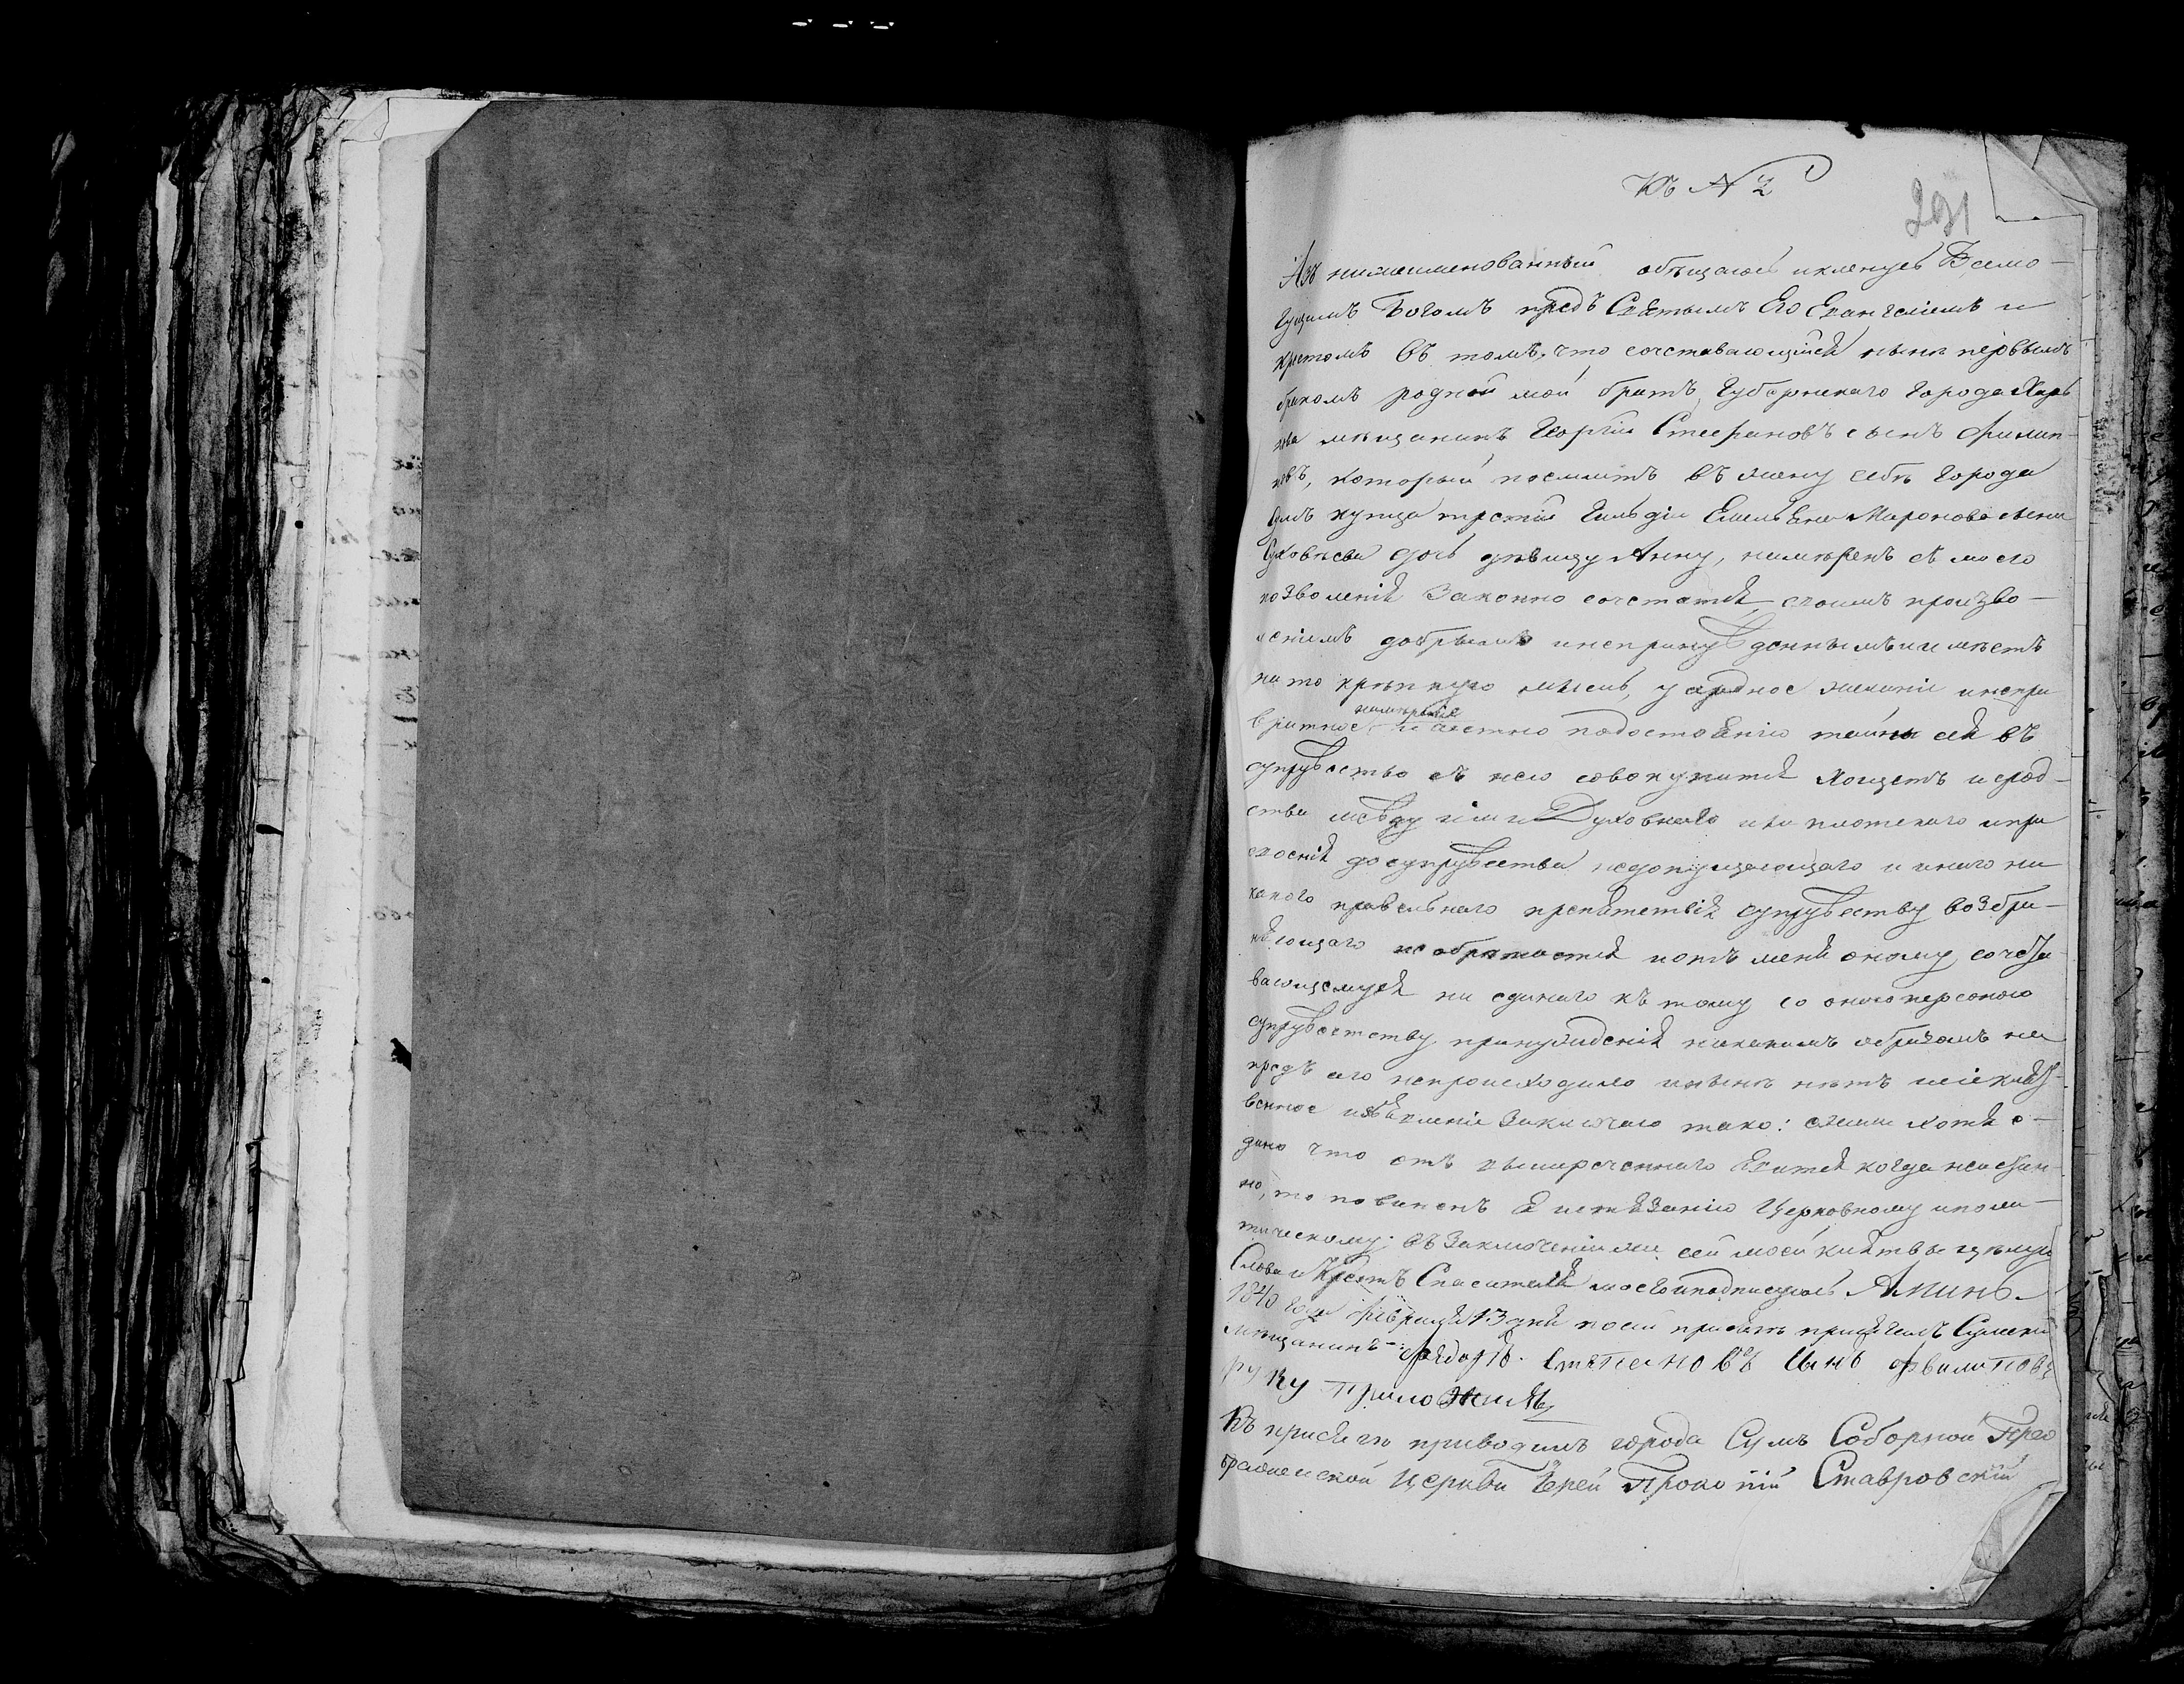 Къ № 2
291
Азъ нижеименованный обѣщаюсь и кленусь Всемо-
гущимъ Богомъ предъ Святымъ Его Евангеліемъ и
крестомъ въ томъ, что сочетавающійся нынѣ первымъ
бракомъ родной мой братъ, Губернскаго города Харь
кова мѣщанинъ Георгій Стефановъ сынъ Филип-
повъ, который поемлитъ въ жену себѣ города
Сумъ купца третій Гильдіи Емельяна Миронова сына
дочь дѣвицу Анну, намѣренъ съ моего
позволенія Законно сочетатся своимъ произво-
леніемъ добрымъ и непринужденнымъ и имѣетъ
на то крѣпкую мысль, усердное желаніе и непри
вратное намѣреніе и честно по достоянію тайны сея въ
супружество съ нею совокупится хощетъ и срод-
ства между ими Духовнаго или плотскаго и при
своенія до супружества недопущающаго и инаго ни
какого правельнаго препятствія супружеству возбра-
няющаго не обрѣтается и отъ меня оному сочета
вающемуся ни единаго къ тому со оною персоною
супружеству принужденія никакимъ образомъ на
предъ сего непроисходило и нынѣ нѣтъ и сіе клят-
венное изъявленіе Заключаю тако: ежели хотя е-
дино что отъ вышереченнаго явится когда неистин-
но, то повиненъ я истязанію Церковному и поли-
тическому; въ Заключеніи же сей моей клятвы цѣлую
Слова и Крестъ Спасителя моего и подписуюсь Аминь.
1840 года февраля 13 дня по сей присягѣ присягалъ Сумскій
мѣщанинъ Федоръ Степановъ сынъ Филиповъ
руку приложилъ
Къ присягѣ приводилъ города Сумъ Соборной Прео
браженской Церкви Іерей Прокопій Ставровскій